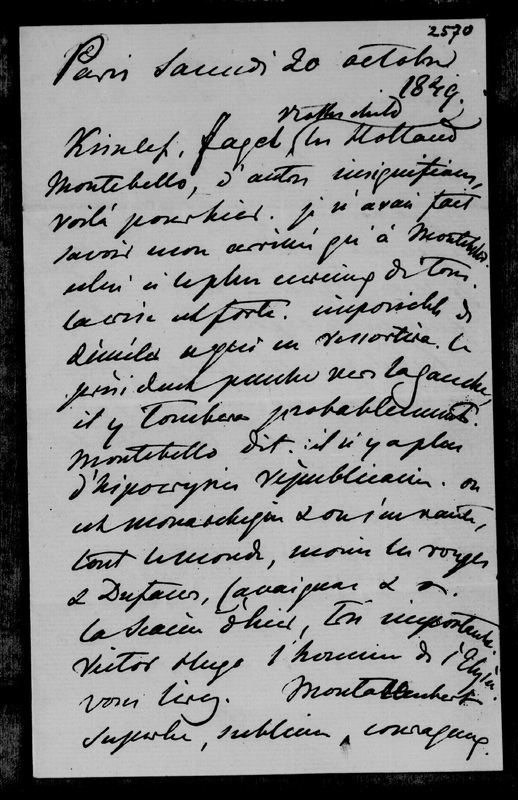 2570
Paris Samedi 20 octobre
1849.
Rothschild
Kisselef, Fagel, les Holland
Montebello, d'autres insignifians,
voilà pour hier. je n'avais fait
savoir mon arrivée qu'à Montebello.
celui ci le plus curieux de tous.
la crise est forte. impossible de
démêler ce qui en ressortira. le
président penche vers la gauche,
il y tombera probablement.
Montebello dit. il n'y a plus
d'hipocrysie républicaine. on
est monarchique & on s'en vante,
tout le monde, moins les rouges
& Dufaure, Cavaignac & &.
la Séance d'hier, très importante.
Victor Hugo l'homme de l'Elysée.
vous lirez. Montallembert
superbe, sublime, courageux.